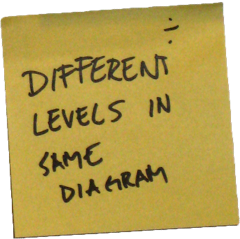 ÷
DIFFERENT
LEVELS IN
SAME
DIAGRAM